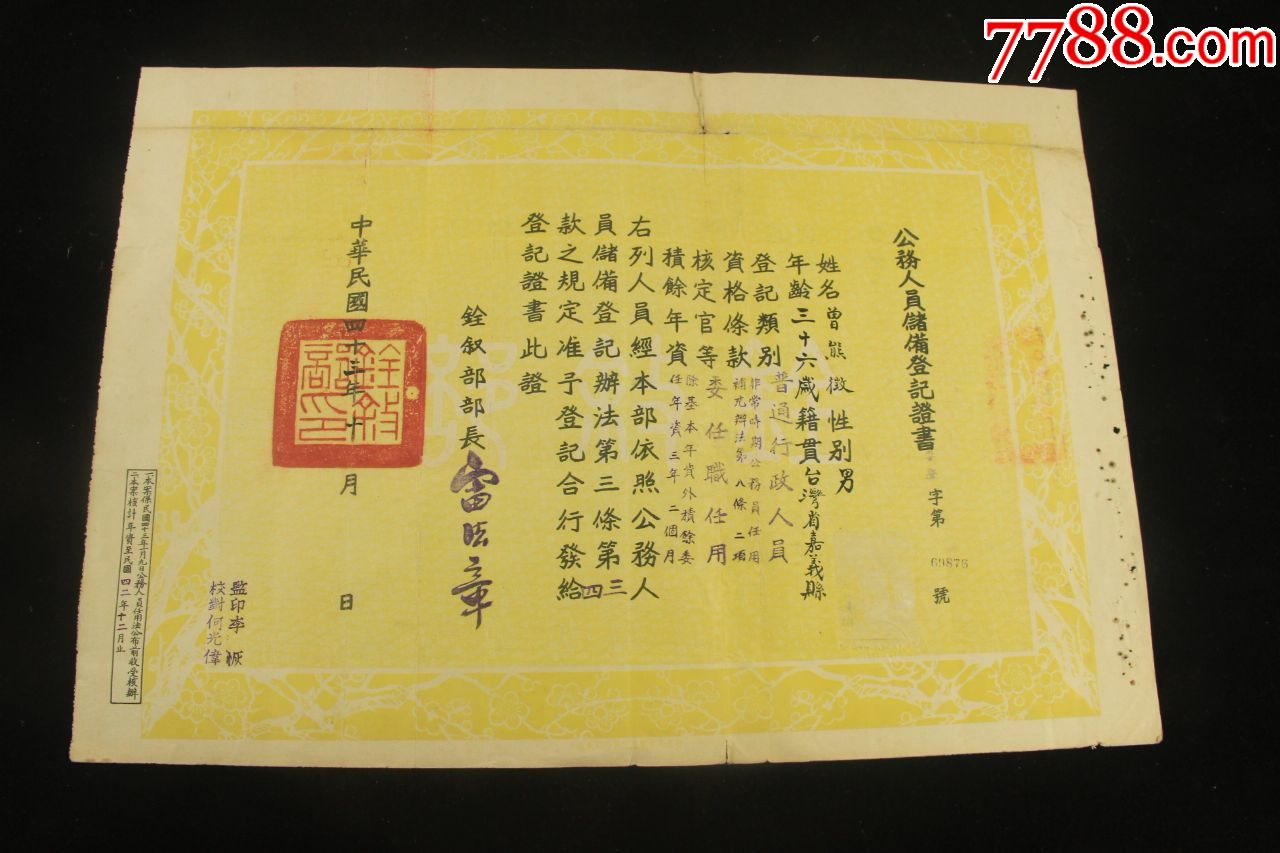 7788.com
公務人員儲備登記證書
字第
69876
號
姓名曾熊徵性別男
年齡三十六歲籍貫台灣省嘉義縣
登記類別普通行政人員
資格條款非常時期公務員任用
補充辦法第八條二項
核定官等委任職任用
積餘年資除基本年資外積餘委
任年資三年二個月
右列人員經本部依照公務人
員儲備登記辦法第三條第三四
款之規定准予登記合行發給
登記證書此證
銓敘部部長雷法章
中華民國四十三年十
月
日
銓敘部印
監印李
校對何光偉
一本案係民國四十三年一月九日公務人員任用法公布前收受核辦
二本案核計年資至民國四二年十二月止